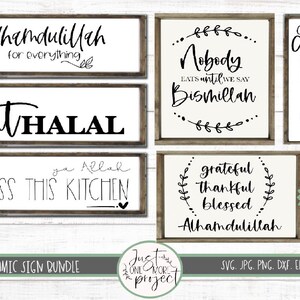 hamdulillah
for everything
Nobody
EATS until WE SAY
Bismillah
t HALAL
ya Allah
SS THIS KITCHEN
grateful
thankful
blessed
Alhamdulillah
OMIC SIGN BUNDLE
Just
ONE MORE
project
SVG. JPG. PNG. DXF. E